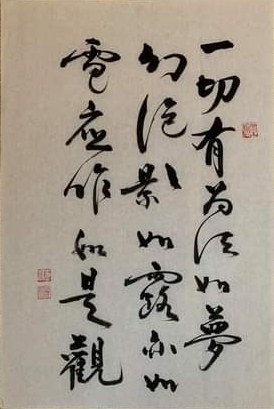 一切有为法如夢
幻泡影如露亦如
電应作如是觀